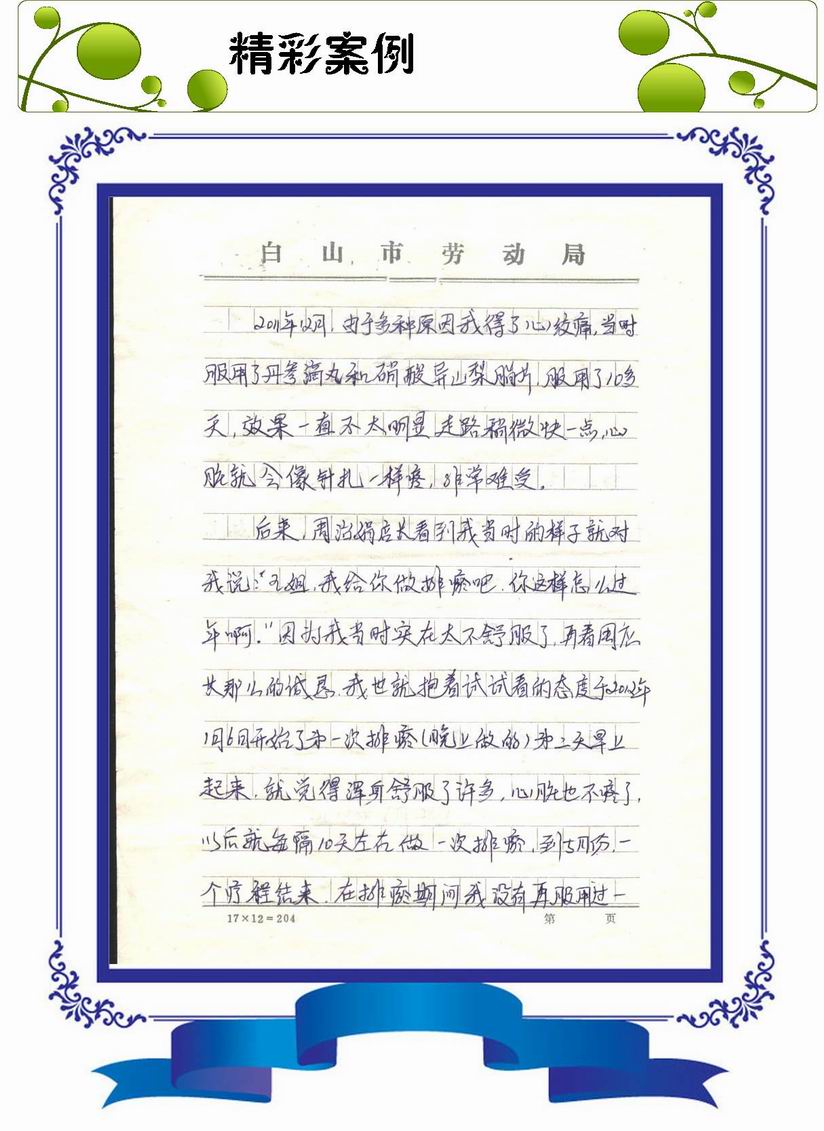 精彩案例
白山市劳动局
2011年12月,由于多种原因我得了心绞痛,当时
服用了丹参滴丸和硝酸异山梨酯片,服用了10多
天,效果一直不太明显走路稍微快一点,心
脏就会像针扎一样疼,非常难受。
后来,周 娟店长看到我当时的样子就对
我说:"王姐,我给你做排瘀吧,你这样怎么过
年啊。"因为我当时实在太不舒服了,再看周店
长那么的诚恳,我也就抱着试试看的态度于2012年
1月6日开始了第一次排瘀(晚上做的)第二天早上
起来,就觉得浑身舒服了许多,心脏也不疼了,
以后就每隔10天左右做一次排瘀,到5月份,一
个疗程结束,在排瘀期间我没有再服用过一
17×12=204 第 页